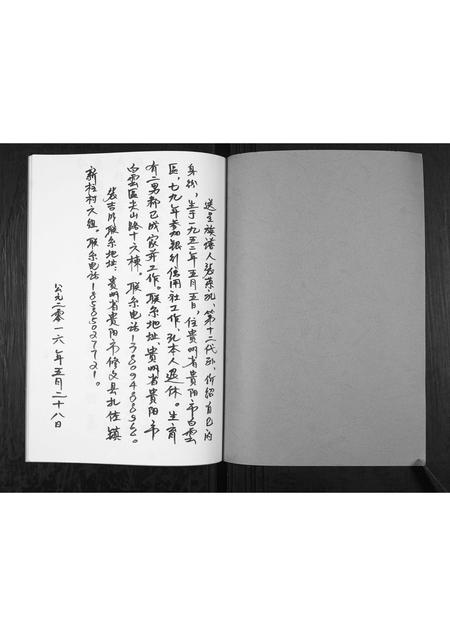 送呈族谱人裴荣孔、第十二代孙，介绍自己的
身份，生于一九五二年五月五日，住贵州省贵阳市白雲
區，七九年参加银行信用社工作，孔本人退休。生育
有二男都已成家并工作。联系地址、贵州省贵阳市
白雲區尖山路十六棟。联系电话13809488896。
裴吉 联系地址：贵州省贵阳市修文县扎佐镇
新柱村六组。联系电话18585027721。
公元二零一六年五月二十八日